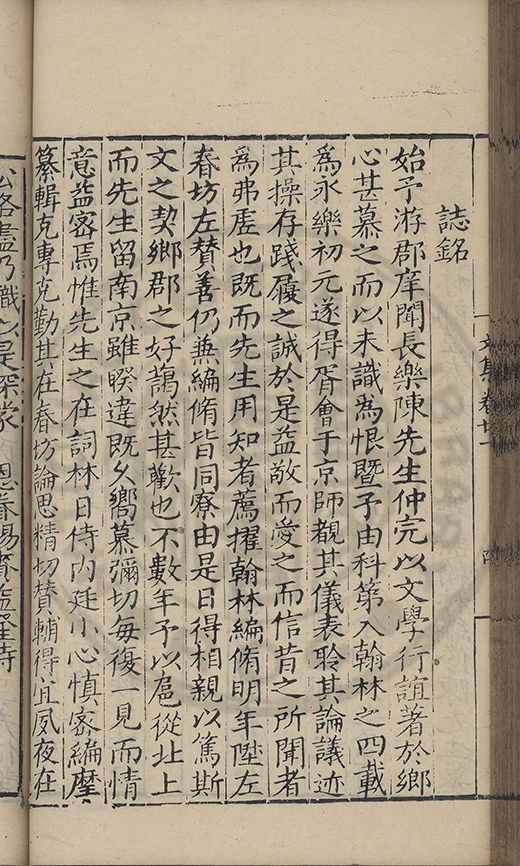 誌銘
始予游郡庠聞長樂陳先生仲完以文學行誼著於鄉
心甚慕之而以未識為恨暨予由科第入翰林之四載
為永樂初元遂得胥會于京師覩其儀表聆其論議迹
其操存踐履之誠於是益敬而愛之而信昔之所聞者
為弗虗也既而先生用知者薦擢翰林編脩明年陞左
春坊左賛善仍兼編脩皆同寮由是日得相親以篤斯
文之契鄉郡之好藹然甚歡也不數年予以扈從北上
而先生留南京雖暌違既久嚮慕彌切毎復一見而情
意益密焉惟先生之在詞林日侍内廷小心慎密編摩
纂輯克專克勤其在春坊論思精切賛輔得宜夙夜在
盡乃職以是深荷 恩眷錫賚益隆時